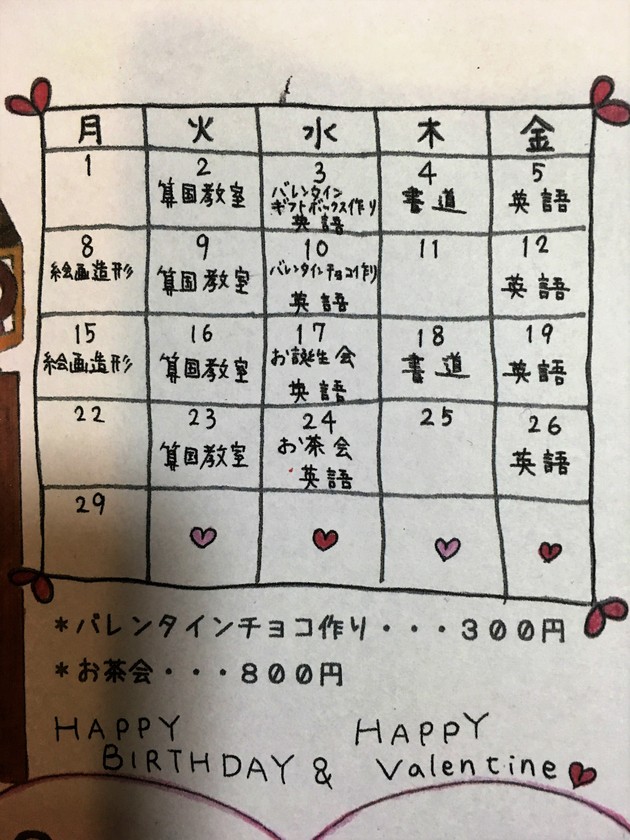 月 火 水 木 金
1 2 3 4 5
算国教室 バレンタイン 書道 英語
ギフトボックス作り
英語
8 9 10 11 12
絵画造形 算国教室 バレンタインチョコ作り 英語
英語
15 16 17 18 19
絵画造形 算国教室 お誕生会 書道 英語
英語
22 23 24 25 26
算国教室 お茶会 英語
英語
29
*バレンタインチョコ作り・・・300円
*お茶会・・・800円
HAPPY HAPPY
BIRTHDAY & Valentine